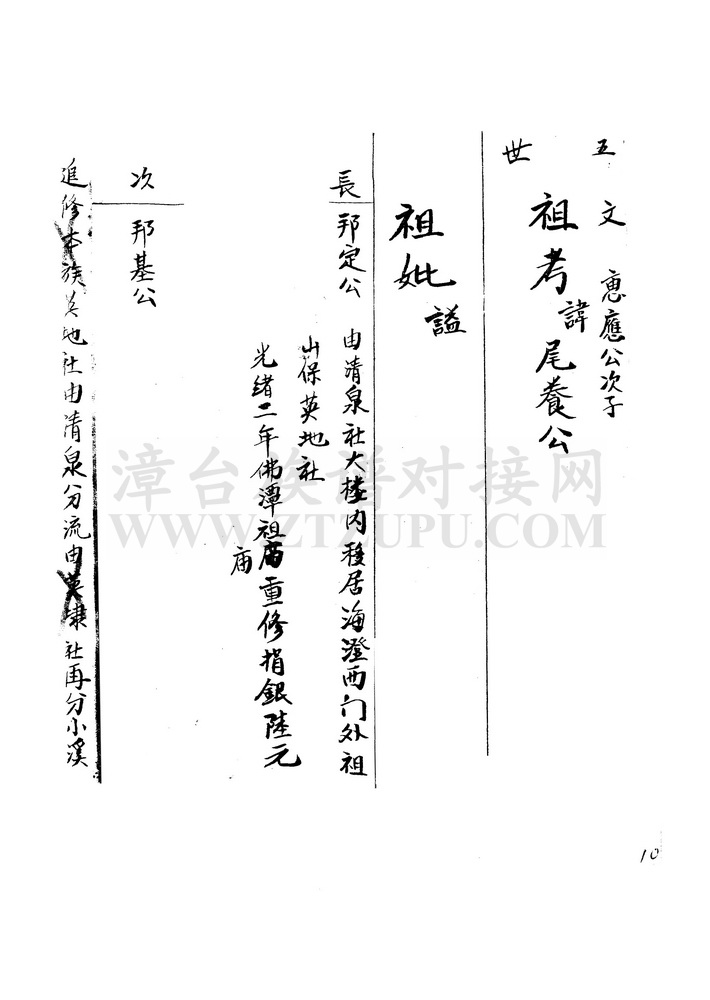 五世
文 惠應公次子
祖考 諱 尾養公
祖妣 謚
長 邦定公 由清泉社大楼内移居海澄西门外祖
山保英地社
光緒二年佛潭祖庙重修捐銀陸元
庙
次 邦基公
追修本族英地社由清泉分流由英埭社再分小溪
漳台族谱对接网
WWW.ZTZUPU.COM
10